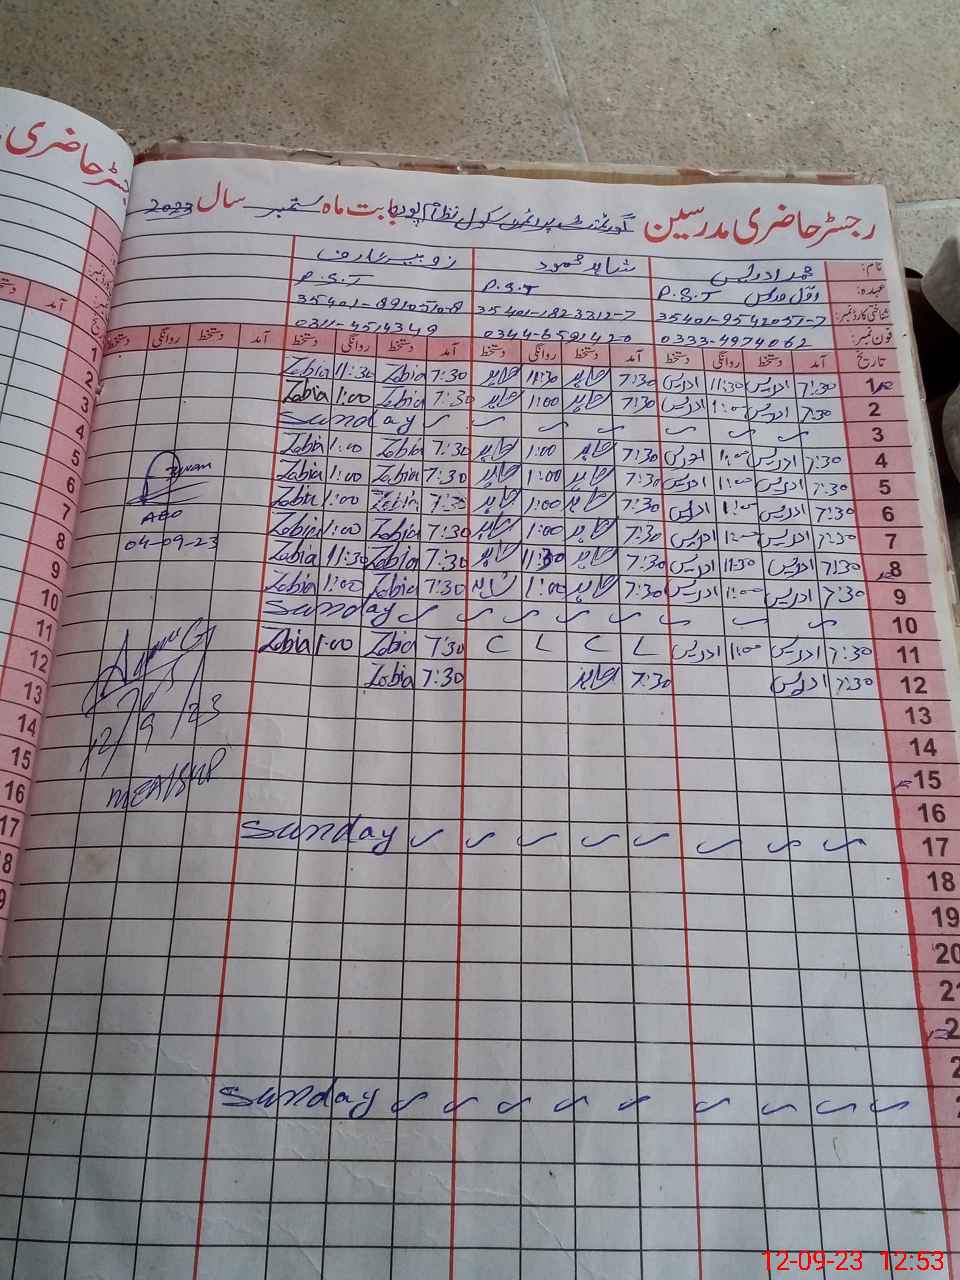 رجسٹر حاضری مدرسین گورنمنٹ پرائمری سکول نظام پورہ بابت ماہ ستمبر سال 2023
رجسٹر حاضری
نام: محمد ادریس شاہد محمود زوبیہ عارف
عہدہ: P.S.T P.S.T P.S.T
شناختی کارڈ نمبر: 35401-9542057-7 35401-1823312-7
فون نمبر: 0333-4974062 0344-6591420 0311-4514349
تاریخ آمد دستخط روانگی دستخط آمد دستخط روانگی دستخط آمد دستخط روانگی دستخط آمد دستخط روانگی دستخط
1 7:30 ادریس 11:30 ادریس 7:30 شاہد 11:30 شاہد 7:30 Zobia 11:30 Zobia
2 7:30 ادریس 1:00 ادریس 7:30 شاہد 1:00 شاہد 7:30 Zobia 1:00 Zobia
3 Sunday
4 7:30 ادریس 1:00 ادریس 7:30 شاہد 1:00 شاہد 7:30 Zobia 1:00 Zobia
5 7:30 ادریس 1:00 ادریس 7:30 شاہد 1:00 شاہد 7:30 Zobia 1:00 Zobia
6 7:30 ادریس 1:00 ادریس 7:30 شاہد 1:00 شاہد 7:30 Zobia 1:00 Zobia
7 7:30 ادریس 1:00 ادریس 7:30 شاہد 1:00 شاہد 7:30 Zobia 1:00 Zobia
8 7:30 ادریس 11:30 ادریس 7:30 شاہد 11:30 شاہد 7:30 Zobia 11:30 Zobia
9 7:30 ادریس 1:00 ادریس 7:30 شاہد 1:00 شاہد 7:30 Zobia 1:00 Zobia
10 Sunday
11 7:30 ادریس 1:00 ادریس L C L C 7:30 Zobia 1:00 Zobia
12 7:30 ادریس 7:30 شاہد 7:30 Zobia
13
14
15
16
17 Sunday
18
19
20
Sunday
AEO
04-09-23
12/9/23
آمد
1
2
3
4
5
6
7
8
9
10
11
12
13
14
15
16
17
12-09-23 12:53